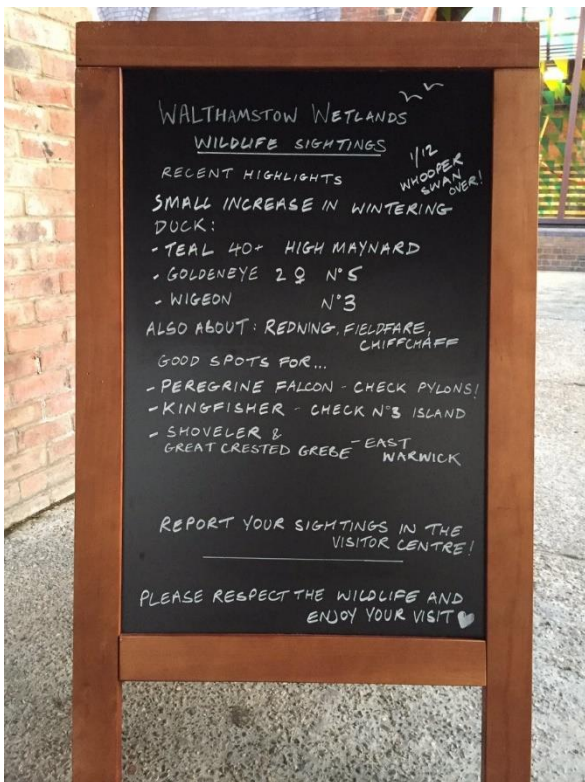 WALTHAMSTOW WETLANDS
WILDLIFE SIGHTINGS
1/12
WHOOPER
SWAN
OVER!
RECENT HIGHLIGHTS
SMALL INCREASE IN WINTERING
DUCK:
- TEAL 40+ HIGH MAYNARD
- GOLDENEYE 2 ♀ Nº5
- WIGEON Nº3
ALSO ABOUT: REDNING, FIELDFARE,
CHIFFCHAFF
GOOD SPOTS FOR...
- PEREGRINE FALCON - CHECK PYLONS!
- KINGFISHER - CHECK Nº3 ISLAND
- SHOVELER &
GREAT CRESTED GREBE - EAST
WARWICK
REPORT YOUR SIGHTINGS IN THE
VISITOR CENTRE!
PLEASE RESPECT THE WILDLIFE AND
ENJOY YOUR VISIT ♥